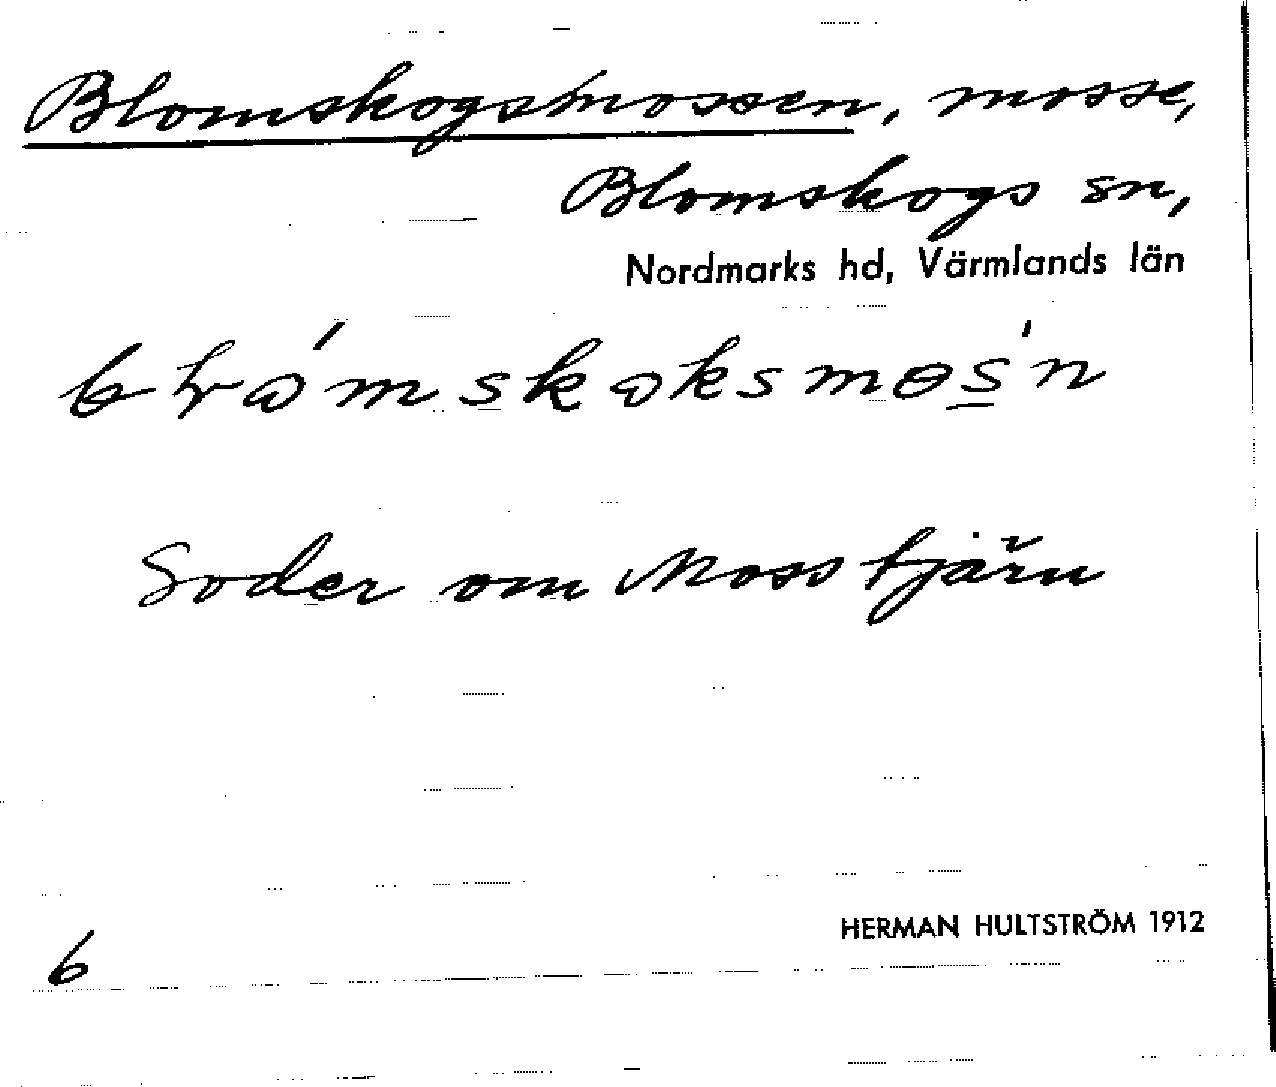 Blomskogsmossen, mosse,
Blomskogs sn,
Nordmarks hd, Värmlands län
Söder om Mosstjärn
HERMAN HULTSTRÖM 1912
6